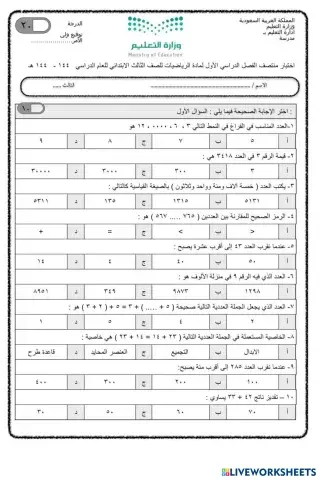 المملكة العربية السعودية
وزارة التعليم
إدارة التعليم بـ
مدرسة
وزارة التعليم
Ministry of Education
الدرجة
٢٠
اختبار منتصف الفصل الدراسي الأول لمادة الرياضيات للصف الثالث الابتدائي للعام الدراسي ١٤٤ - ١٤٤ هـ
الاسم /
الثالث
١٠
السؤال الأول : اختر الإجابة الصحيحة فيما يلي :
١- العدد المناسب في الفراغ في النمط التالي ٣ ، ٦ ، ..... ، ١٢ هو
أ ٥ ب ٧ ج ٨ د ٩
٢- قيمة الرقم ٣ في العدد ٣٤١٨ هي :
أ ٣ ب ٣٠٠ ج ٣٠٠٠ د ٣٠٠٠٠
٣- يكتب العدد ( خمسة آلاف ومئة وواحد وثلاثون ) بالصيغة القياسية كالتالي :
أ ٥١٣١ ب ١٣١٥ ج ١٣٥ د ٥٣١١
٤- الرمز الصحيح للمقارنة بين العددين ( ٧٦٥ ..... ٥٦٧ ) هو :
أ > ب < ج = د +
٥- عندما نقرب العدد ٤٣ إلى أقرب عشرة يصبح :
أ ٥٠ ب ٤٠ ج ٤ د ١٤
٦- العدد الذي فيه الرقم ٩ في منزلة الألوف هو :
أ ١٢٩٨ ب ٩٨٧٣ ج ٣٤٩ د ٨٩٥١
٧- العدد الذي يجعل الجملة العددية التالية صحيحة ( ٥ + ..... ) + ٣ = ٥ + ( ٢ + ٣ ) هو :
أ ٢ ب ٤ ج ٥ د ١
٨- الخاصية المستعملة في الجملة العددية التالية ( ٢٣ + ١٤ = ١٤ + ٢٣ ) هي خاصية :
أ الابدال ب التجميع ج العنصر المحايد د قاعدة طرح
٩- عندما نقرب العدد ٢٨٥ إلى أقرب مئة يصبح:
أ ١٠٠ ب ٢٠٠ ج ٣٠٠ د ٤٠٠
١٠ - تقدير ناتج ٤٢ + ٣٣ يساوي :
أ ٧٠ ب ٦٠ ج ٥٠ د ٣٠
LIVEWORKSHEETS